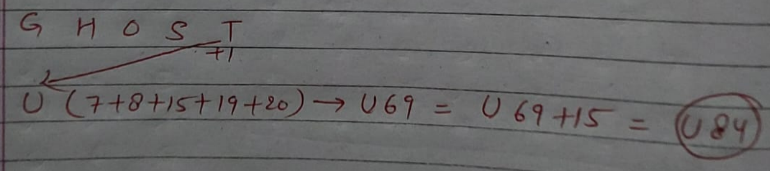 G H O S T
+1
U (7+8+15+19+20) → U69 = U69+15 = U84